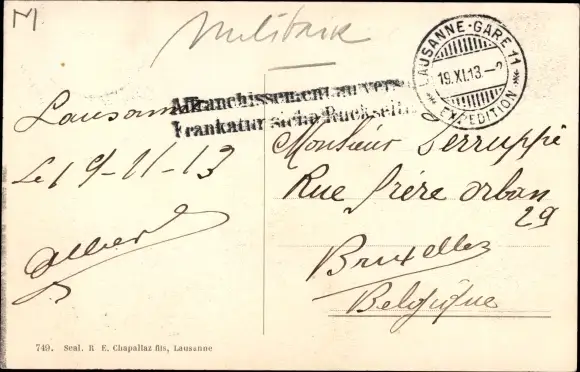 M
Militair
LAUSANNE-GARE 11
19.XI.13.-2
EXPEDITION
Affranchissement au verso
Frankatur siehe Rückseite
Lausanne
Le 19-11-13
Albert
Monsieur Serruppé
Rue Frère Orban
29
Bruxelles
Belgique
749. Seal. R. E. Chapallaz fils, Lausanne